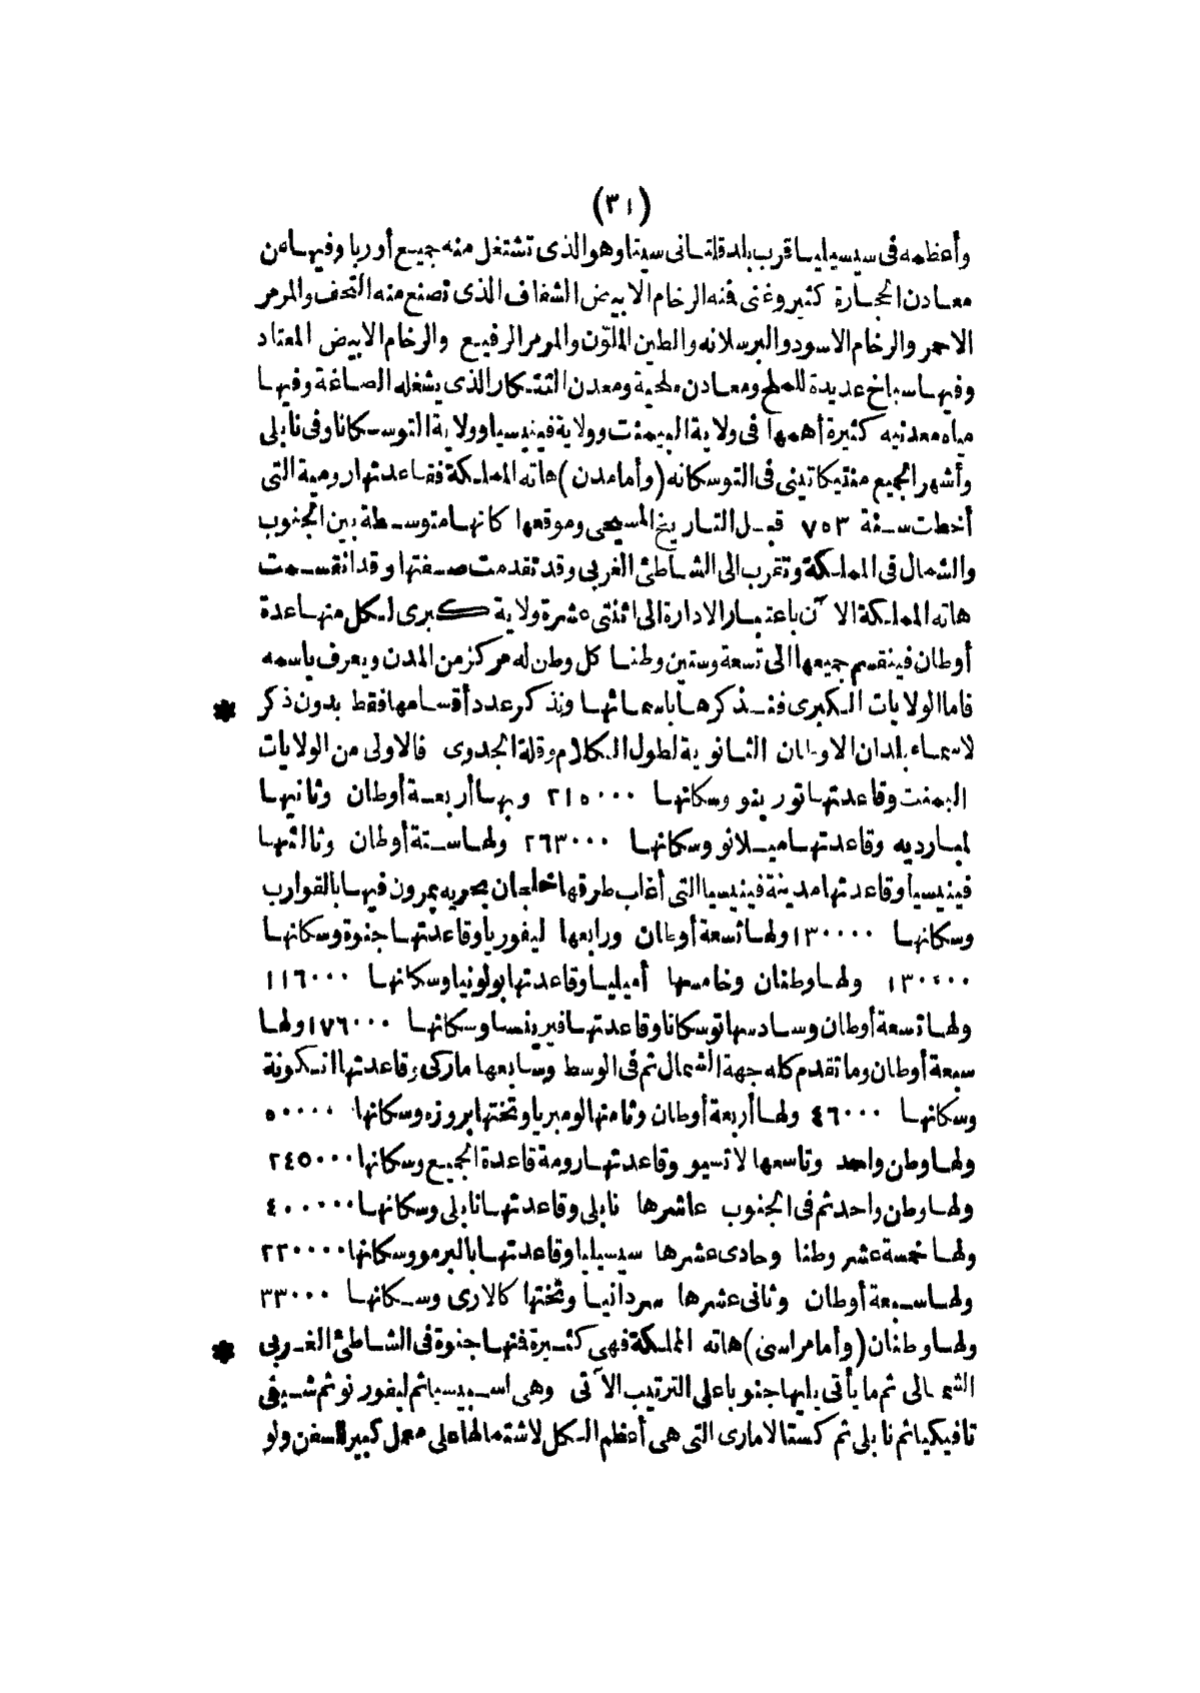 (٣١)
وأعظمه فى سيسيليا قرب بلد قلتانى سيتا وهو الذى تشتغل منه جميع أوربا وفيها من
معادن الحجارة كثير وغنى فنه الرخام الابيض الشفاف الذى تصنع منه التحف والمرمر
الاحمر والرخام الاسود والبرسلانه والطين الملوّن والمرمر الرفيع والرخام الابيض المعتاد
وفيها سباخ عديدة للملح ومعادن ملحية ومعدن التنكار الذى يشغله الصاغة وفيها
مياه معدنيه كثيرة أهمها فى ولاية البيمنت وولاية فينيسيا وولاية التوسكانا وفى نابلى
وأشهر الجميع منتيكاتينى فى التوسكانه (وأما مدن) هاته المملكة فقاعدتها رومية التى
أختطت سنة ٧٥٣ قبل التاريخ المسيحى وموقعها كانها متوسطة بين الجنوب
والشمال فى المملكة وتقرب الى الشاطئ الغربى وقد تقدمت صفتها وقد انقسمت
هاته المملكة الآن باعتبار الادارة الى اثنتى عشرة ولاية كبرى لكل منها عدة
أوطان فينقسم جميعها الى تسعة وستين وطنا كل وطن له مركز من المدن ويعرف باسمه
فاما الولايات الكبرى فنذكرها باسمائها ونذكر عدد أقسامها فقط بدون ذكر *
لاسماء بلدان الاوطان الثانوية لطول الكلام وقلة الجدوى فالاولى من الولايات
البمنت وقاعدتها تورينو وسكانها ٢١٥٠٠٠ وبها أربعة أوطان وثانيها
لمبارديه وقاعدتها ميلانو وسكانها ٢٦٣٠٠٠ ولها ستة أوطان وثالثها
فينيسيا وقاعدتها مدينة فينيسيا التى أغلب طرقها خلجان بحريه يمرون فيها بالقوارب
وسكانها ١٣٠٠٠٠ ولها تسعة أوطان ورابعها ليفوريا وقاعدتها جنوة وسكانها
١٣٠٠٠٠ ولها وطنان وخامسها أميليا وقاعدتها بولونيا وسكانها ١١٦٠٠٠
ولها تسعة أوطان وسادسها توسكانا وقاعدتها فيرينسا وسكانها ١٧٦٠٠٠ ولها
سبعة أوطان وما تقدم كله جهة الشمال ثم فى الوسط وسابعها ماركى وقاعدتها انكونة
وسكانها ٤٦٠٠٠ ولها أربعة أوطان وثامنها لومبريا وتختها بروزه وسكانها ٥٠٠٠٠
ولها وطن واحد وتاسعها لاتسيو وقاعدتها رومة قاعدة الجميع وسكانها ٢٤٥٠٠٠
ولها وطن واحد ثم فى الجنوب عاشرها نابلى وقاعدتها نابلى وسكانها ٤٠٠٠٠٠
ولها خمسة عشر وطنا وحادى عشرها سيسيليا وقاعدتها بالبرمو وسكانها ٢٢٠٠٠٠
ولها سبعة أوطان وثانى عشرها سردانيا وتختها كالارى وسكانها ٣٣٠٠٠
ولها وطنان (وأما مراسى) هاته المملكة فهى كثيرة فنها جنوة فى الشاطئ الغربى *
الشمالى ثم ما يأتى يليها جنوبا على الترتيب الآتى وهى اسبيسيا ثم ليفورنو ثم شيفى
تافيكيا ثم نابلى ثم كستالامارى التى هى أعظم الكل لاشتمالها على معمل كبير للسفن ولو